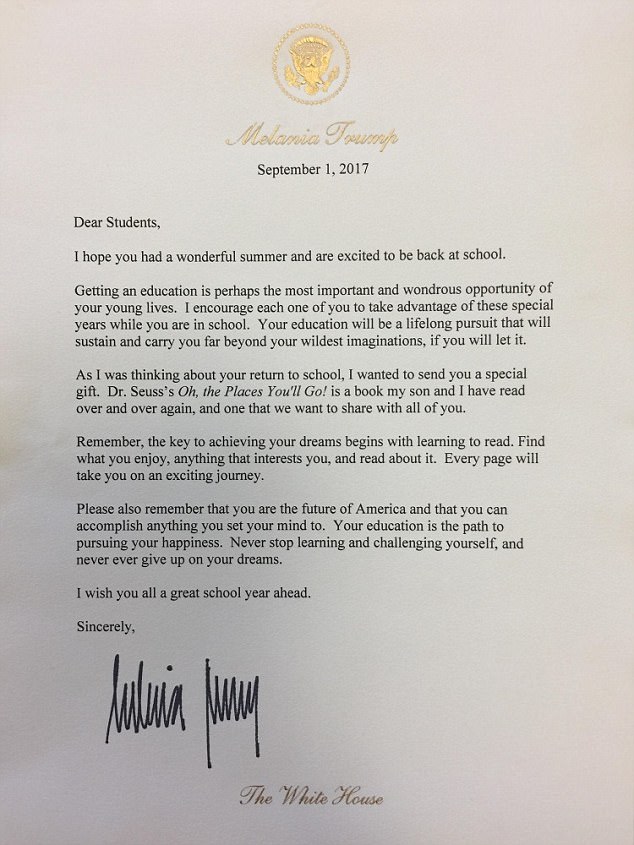 Melania Trump
September 1, 2017
Dear Students,
I hope you had a wonderful summer and are excited to be back at school.
Getting an education is perhaps the most important and wondrous opportunity of
your young lives.  I encourage each one of you to take advantage of these special
years while you are in school.  Your education will be a lifelong pursuit that will
sustain and carry you far beyond your wildest imaginations, if you will let it.
As I was thinking about your return to school, I wanted to send you a special
gift.  Dr. Seuss's Oh, the Places You'll Go! is a book my son and I have read
over and over again, and one that we want to share with all of you.
Remember, the key to achieving your dreams begins with learning to read. Find
what you enjoy, anything that interests you, and read about it.  Every page will
take you on an exciting journey.
Please also remember that you are the future of America and that you can
accomplish anything you set your mind to.  Your education is the path to
pursuing your happiness.  Never stop learning and challenging yourself, and
never ever give up on your dreams.
I wish you all a great school year ahead.
Sincerely,
The White House